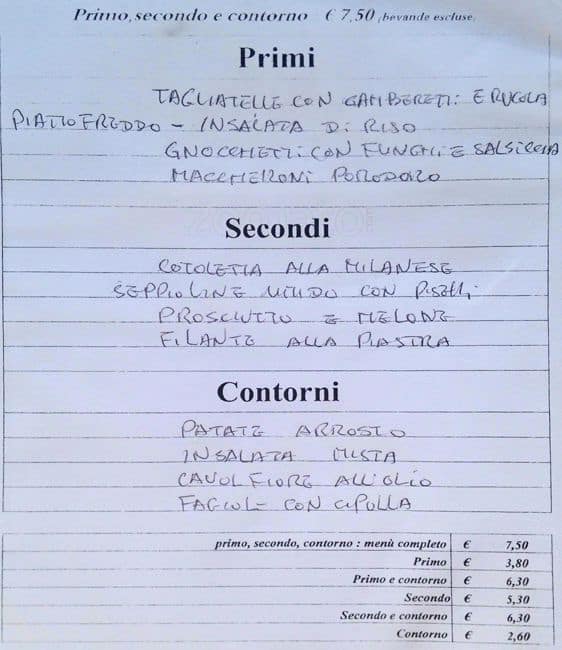 Primo, secondo e contorno € 7,50 (bevande escluse.
Primi
TAGLIATELLE CON GAMBERETI: E RUCOLA
PIATTO FREDDO - INSALATA DI RISO
GNOCCHETTI CON FUNGHI E SALSICCIA
MACCHERONI POMODORO
Secondi
COTOLETTA ALLA MILANESE
SEPPIOLINE UMIDO CON PISELLI
PROSCIUTTO E MELONE
FILANTE ALLA PIASTRA
Contorni
PATATE ARROSTO
INSALATA MISTA
CAVOLFIORE ALL'OLIO
FAGIOLI CON CIPOLLA
primo, secondo, contorno : menù completo € 7,50
Primo € 3,80
Primo e contorno € 6,30
Secondo € 5,30
Secondo e contorno € 6,30
Contorno € 2,60